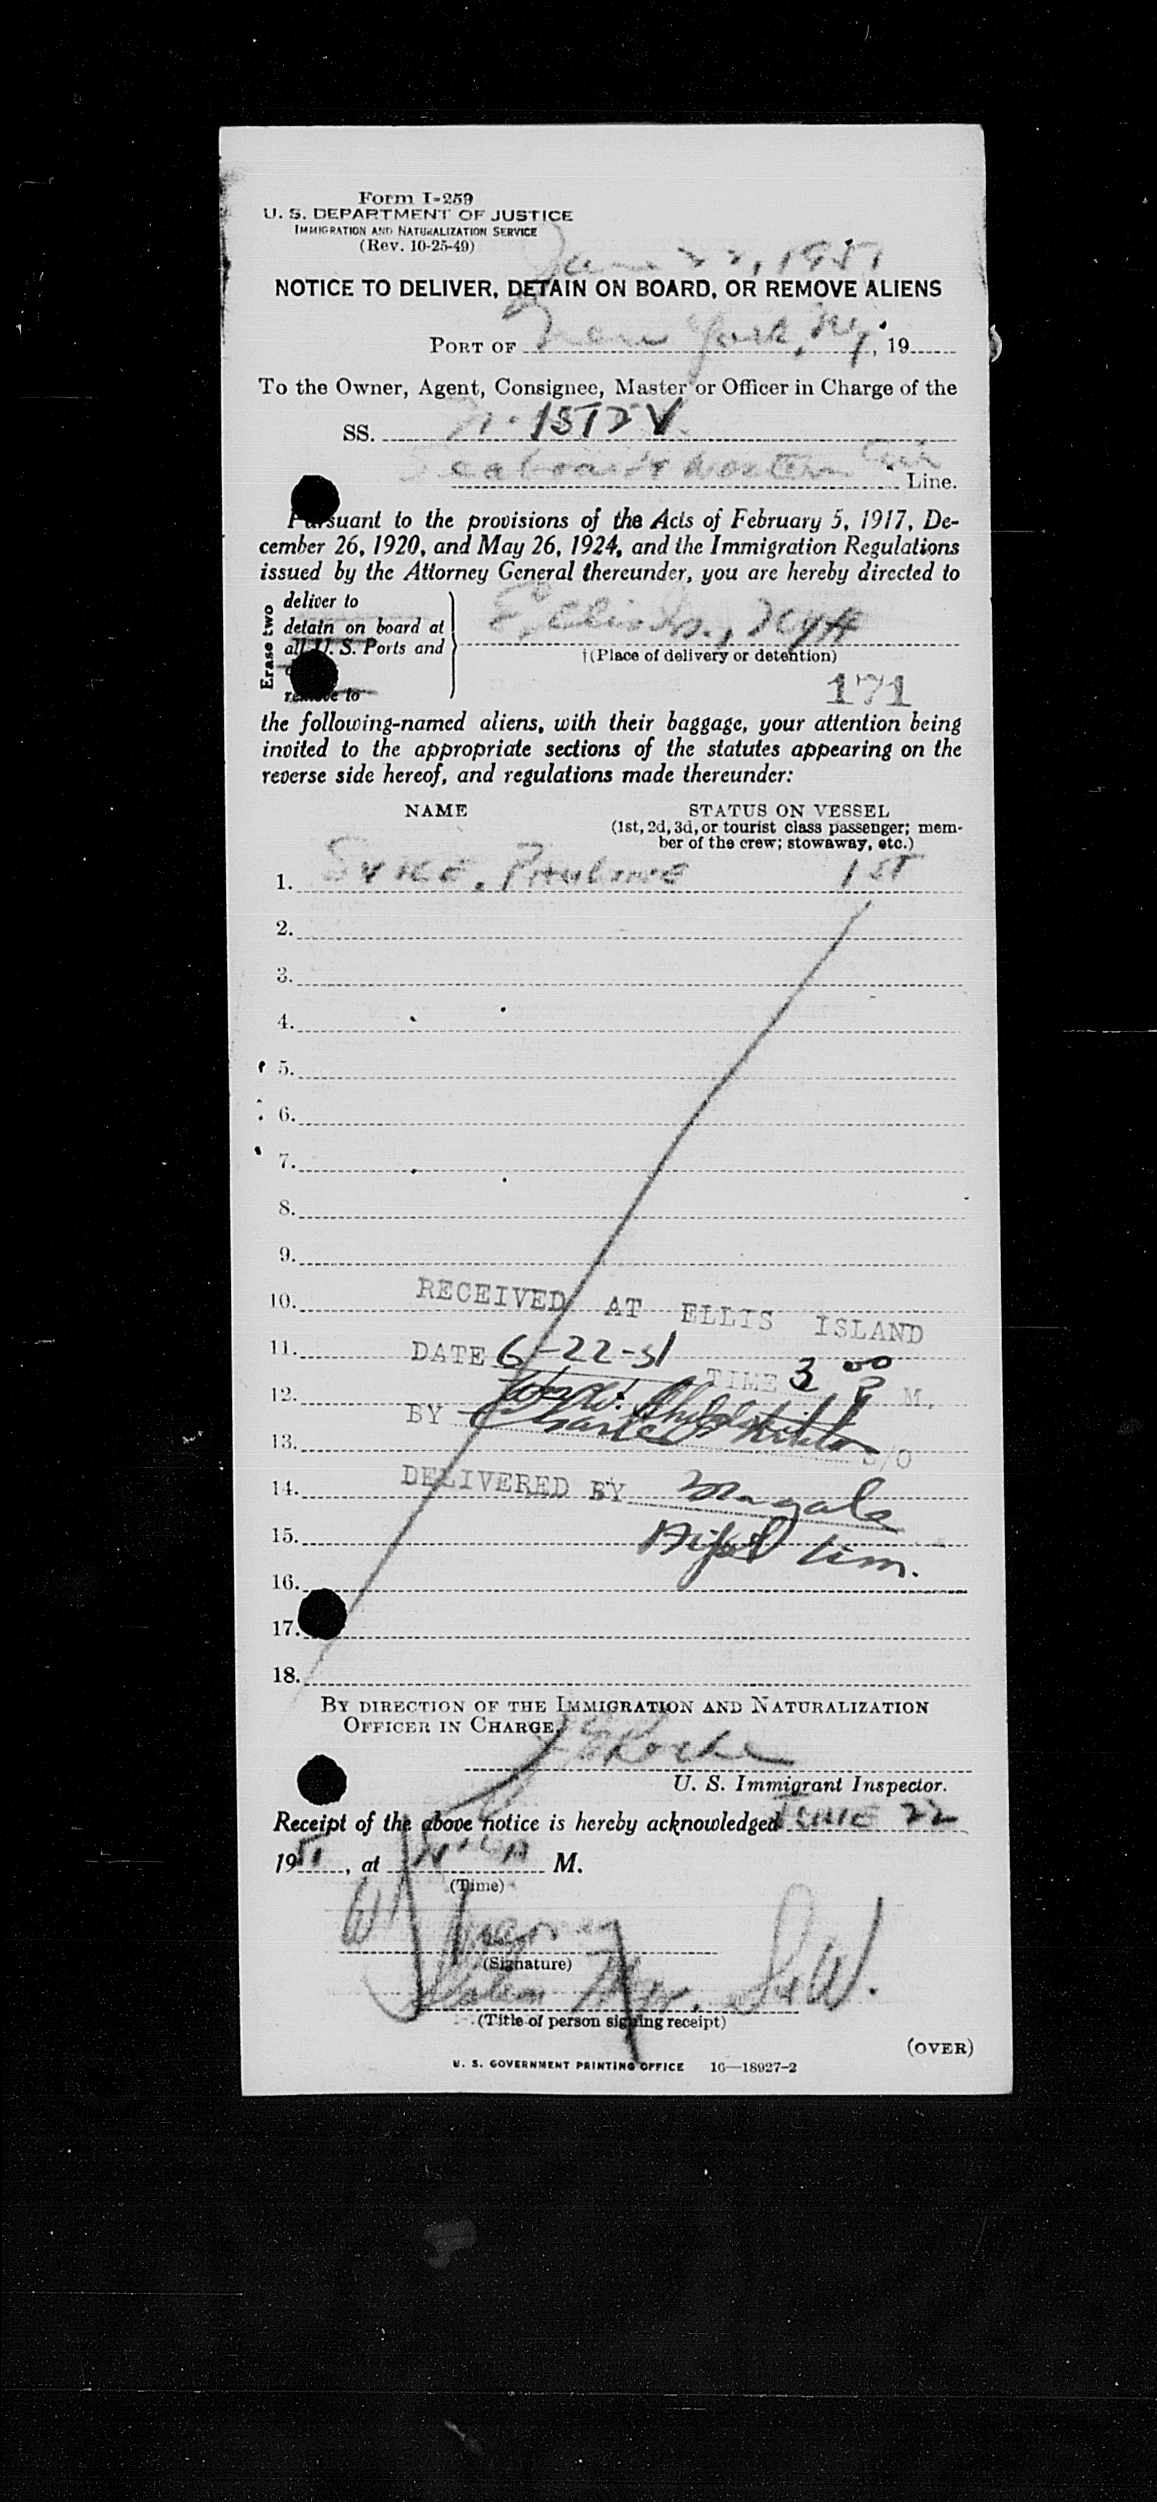 Form I-259
U. S. DEPARTMENT OF JUSTICE
IMMIGRATION AND NATURALIZATION SERVICE
(Rev. 10-25-49)
June 22, 1951
NOTICE TO DELIVER, DETAIN ON BOARD, OR REMOVE ALIENS
PORT OF New York, NY, 19
To the Owner, Agent, Consignee, Master or Officer in Charge of the
SS. N-1572V
Seaboard & Western Air Line.
Pursuant to the provisions of the Acts of February 5, 1917, De-
cember 26, 1920, and May 26, 1924, and the Immigration Regulations
issued by the Attorney General thereunder, you are hereby directed to
Erase two
deliver to
detain on board at
all U. S. Ports and
remove to
Ellis Is., NYH
†(Place of delivery or detention)
171
the following-named aliens, with their baggage, your attention being
invited to the appropriate sections of the statutes appearing on the
reverse side hereof, and regulations made thereunder:
NAME STATUS ON VESSEL
(1st, 2d, 3d, or tourist class passenger; mem-
ber of the crew; stowaway, etc.)
1. SYKE, PAULINE 1ST
2.
3.
4.
5.
6.
7.
8.
9.
10. RECEIVED AT ELLIS ISLAND
11. DATE 6-22-51 TIME 3 00 P M.
12.
BY Charles S/O
13.
14. DELIVERED BY
15.
16.
17.
18.
BY DIRECTION OF THE IMMIGRATION AND NATURALIZATION
OFFICER IN CHARGE,
Roche
U. S. Immigrant Inspector.
Receipt of the above notice is hereby acknowledged JUNE 22
1951, at M.
(Time)
W
(Signature)
Station Mgr. S&W.
(Title of person signing receipt)
(OVER)
U. S. GOVERNMENT PRINTING OFFICE 16—18927-2